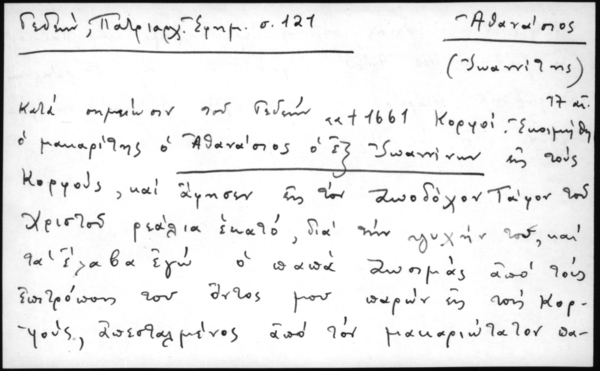 Γεδεών, Πατριαρχ. Εφημ. σ. 121
Ἀθανάσιος
(Ἰωαννίτης)
17 αἰ.
Κατὰ σημείωσιν τοῦ Γεδεών "1661 Κορφοί. Ἐκοιμήθη
ὁ μακαρίτης ὁ Ἀθανάσιος ὁ ἐξ Ἰωαννίνων εἰς τοὺς
Κορφούς, καὶ ἄφησεν εἰς τὸν Ζωοδόχον Τάφον τοῦ
Χριστοῦ ρεάλια ἑκατό, διὰ τὴν ψυχήν του, καὶ
τὰ ἔλαβα ἐγώ ὁ παπᾶ Ζωσιμᾶς ἀπὸ τοὺς
ἐπιτρόπους του ὄντος μου παρὼν εἰς τοὺς Κορ-
φούς, ἀπεσταλμένος ἀπὸ τὸν μακαριώτατον πα-